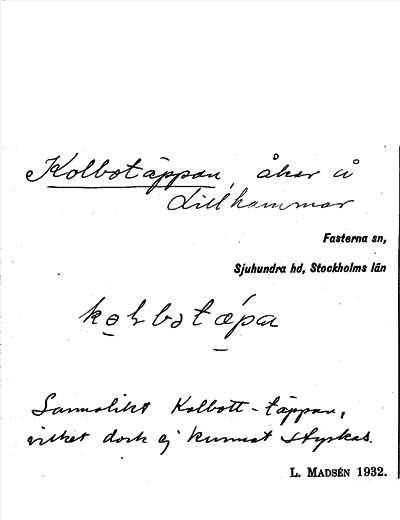 Kolbotäppan, åker å
Lillhammar
Fasterna sn,
Sjuhundra hd, Stockholms län
Sannolikt Kolbott-täppan,
vilket dock ej kunnat styrkas.
L. MADSÉN 1932.